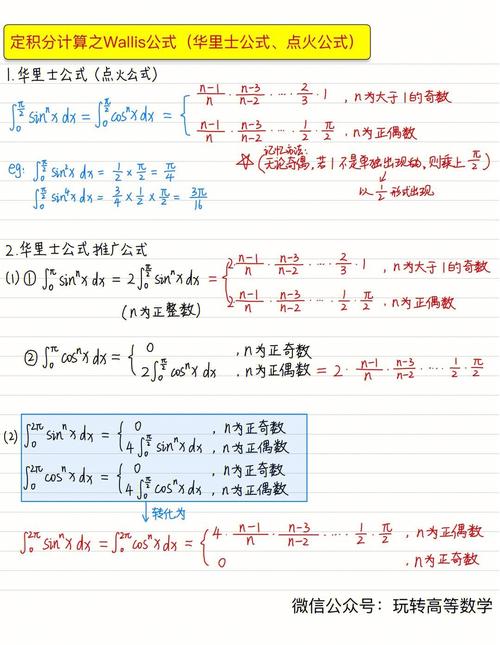 定积分计算之Wallis公式（华里士公式、点火公式）
1.华里士公式（点火公式）
∫₀^(π/2) sinⁿx dx = ∫₀^(π/2) cosⁿx dx = { (n-1)/n · (n-3)/(n-2) · ··· · 2/3 · 1 , n为大于1的奇数
(n-1)/n · (n-3)/(n-2) · ··· · 1/2 · π/2 , n为正偶数
记忆方法:
(无论奇偶,若1不是单独出现动,则乘上π/2)
以1/2形式出现
eg: ∫₀^(π/2) sin²x dx = 1/2 × π/2 = π/4
∫₀^(π/2) sin⁴x dx = 3/4 × 1/2 × π/2 = 3π/16
2.华里士公式推广公式
(1) ① ∫₀^π sinⁿx dx = 2∫₀^(π/2) sinⁿx dx = { 2· (n-1)/n · (n-3)/(n-2) · ··· · 2/3 · 1 , n为大于1的奇数
2· (n-1)/n · (n-3)/(n-2) · ··· · 1/2 · π/2 , n为正偶数
(n为正整数)
② ∫₀^π cosⁿx dx = { 0 , n为正奇数
2∫₀^(π/2) cosⁿx dx , n为正偶数 = 2 · (n-1)/n · (n-3)/(n-2) · ··· · 1/2 · π/2
(2) ∫₀^(2π) sinⁿx dx = { 0 , n为正奇数
4∫₀^(π/2) sinⁿx dx , n为正偶数
∫₀^(2π) cosⁿx dx = { 0 , n为正奇数
4∫₀^(π/2) cosⁿx dx , n为正偶数
转化为
∫₀^(2π) sinⁿx dx = ∫₀^(2π) cosⁿx dx = { 4 · (n-1)/n · (n-3)/(n-2) · ··· · 1/2 · π/2 , n为正偶数
0 , n为正奇数
微信公众号：玩转高等数学